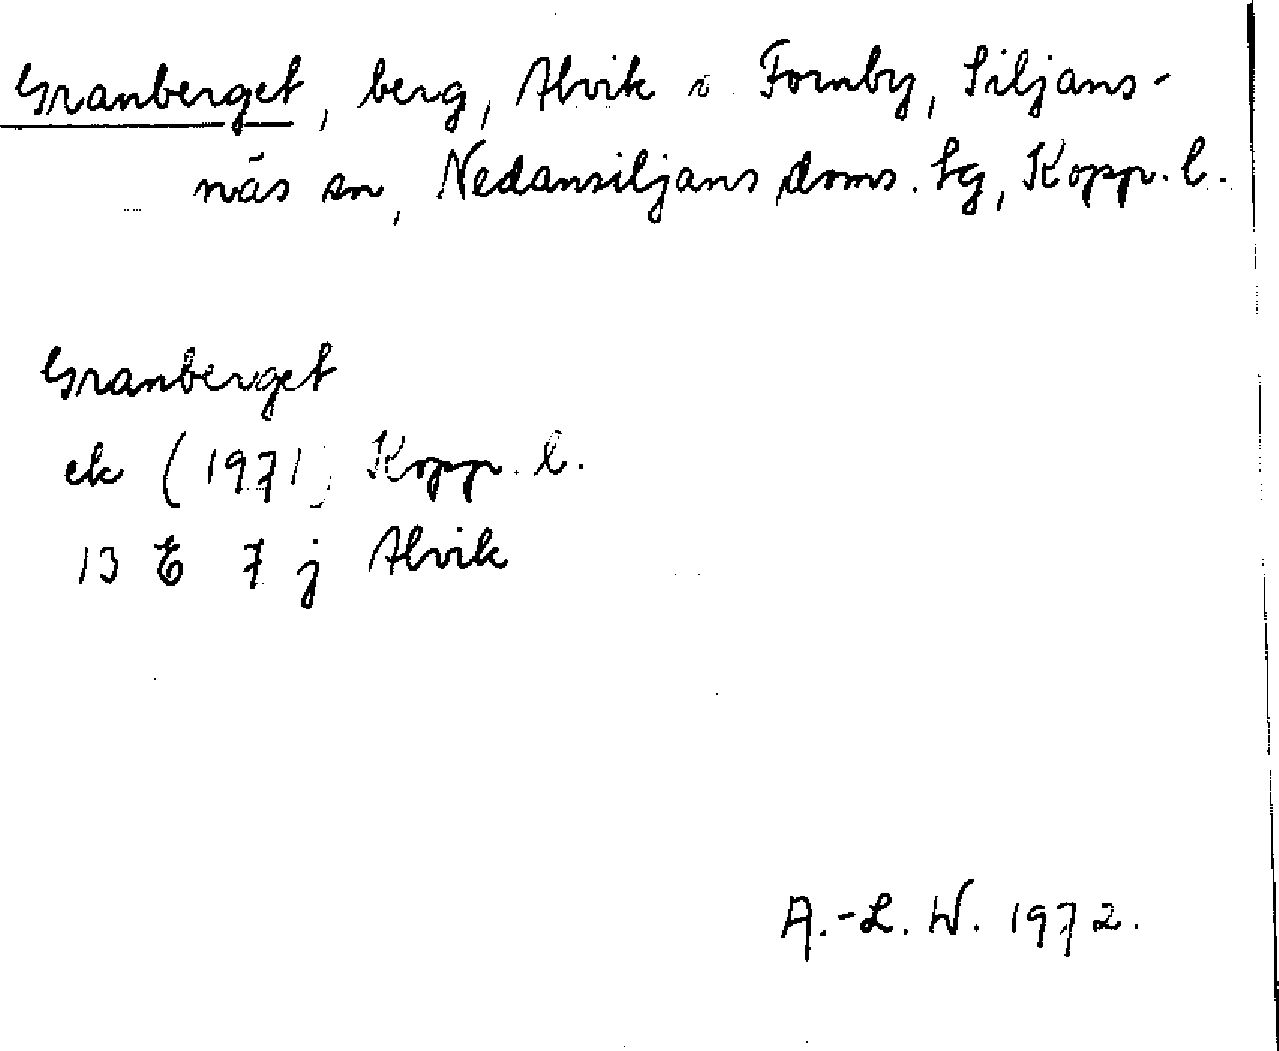 Granberget, berg, Alvik o Fornby, Siljans-
näs sn, Nedansiljans doms. tg, Kopp. l.
Granberget
ek (1971) Kopp. l.
13 E 7 j Alvik
A.-L. W. 1972.